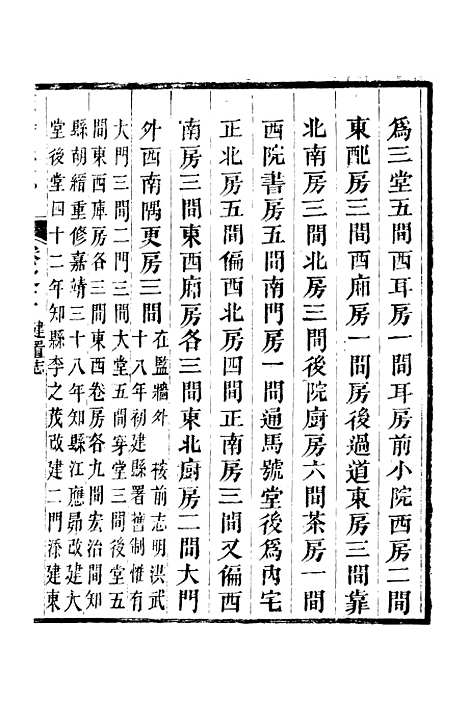 爲三堂五間西耳房一間耳房前小院西房二間
東配房三間西廂房一間房後過道東房三間靠
北南房三間北房三間後院厨房六間茶房一間
西院書房五間南門房一間通馬號堂後爲內宅
正北房五間偏西北房四間正南房三間又偏西
南房三間東西廂房各三間東北厨房二間大門
外西南隅更房三間在監牆外 核前志明洪武
十八年初建縣署舊制惟有
大門三間二門三間大堂五間穿堂三間後堂五
間東西庫房各三間東西卷房各九間宏治間知
縣胡縉重修嘉靖三十八年知縣江應昴改建大
堂後堂四十二年知縣李之茂改建二門添建東
建置志